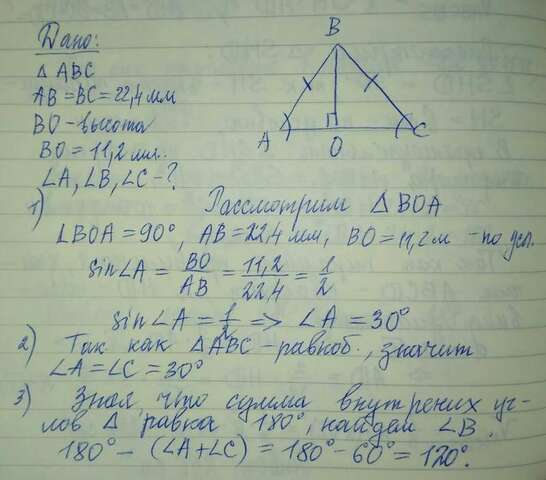 Дано:
B
△ ABC
AB = BC = 22,4 мм
BO - высота
A
C
O
BO = 11,2 мм.
∠A, ∠B, ∠C - ?
1) Рассмотрим △ BOA
∠BOA = 90°, AB = 22,4 мм, BO = 11,2 м - по усл.
sin∠A = BO/AB = 11,2/22,4 = 1/2
sin∠A = 1/2 => ∠A = 30°
2) Так как △ABC - равноб., значит
∠A = ∠C = 30°
3) Зная, что сумма внутрених уг-
лов △ равна 180°, найдем ∠B.
180° - (∠A + ∠C) = 180° - 60° = 120°.